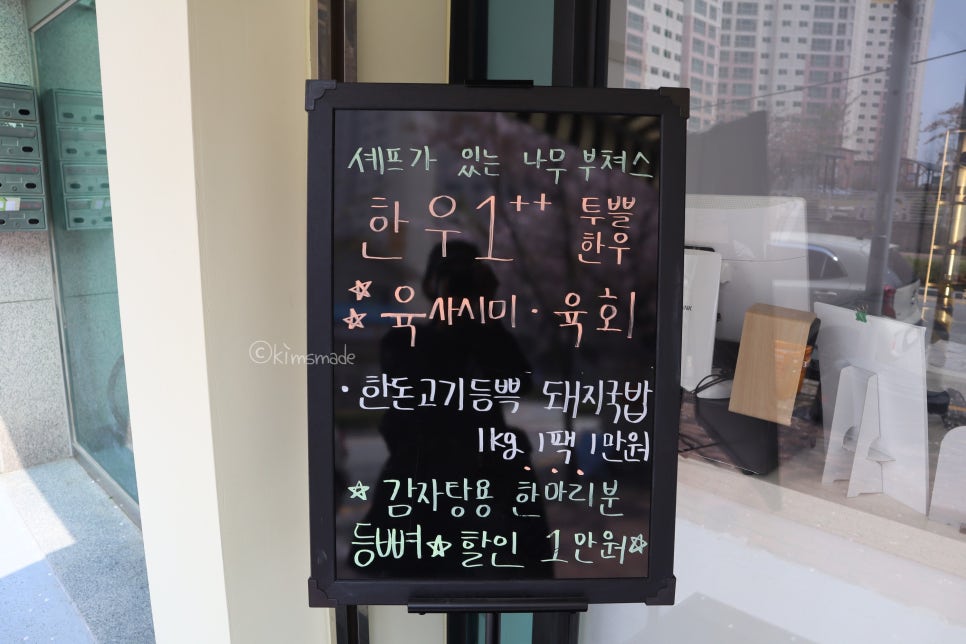 셰프가 있는 나무 부쳐스
한우1++ 투쁠
한우
☆ 육사시미 · 육회
☆
· 한돈고기듬뿍 돼지국밥
1kg 1팩 1만원
☆ 감자탕용 한마리분
등뼈☆ 할인 1만원☆
©kimsmade